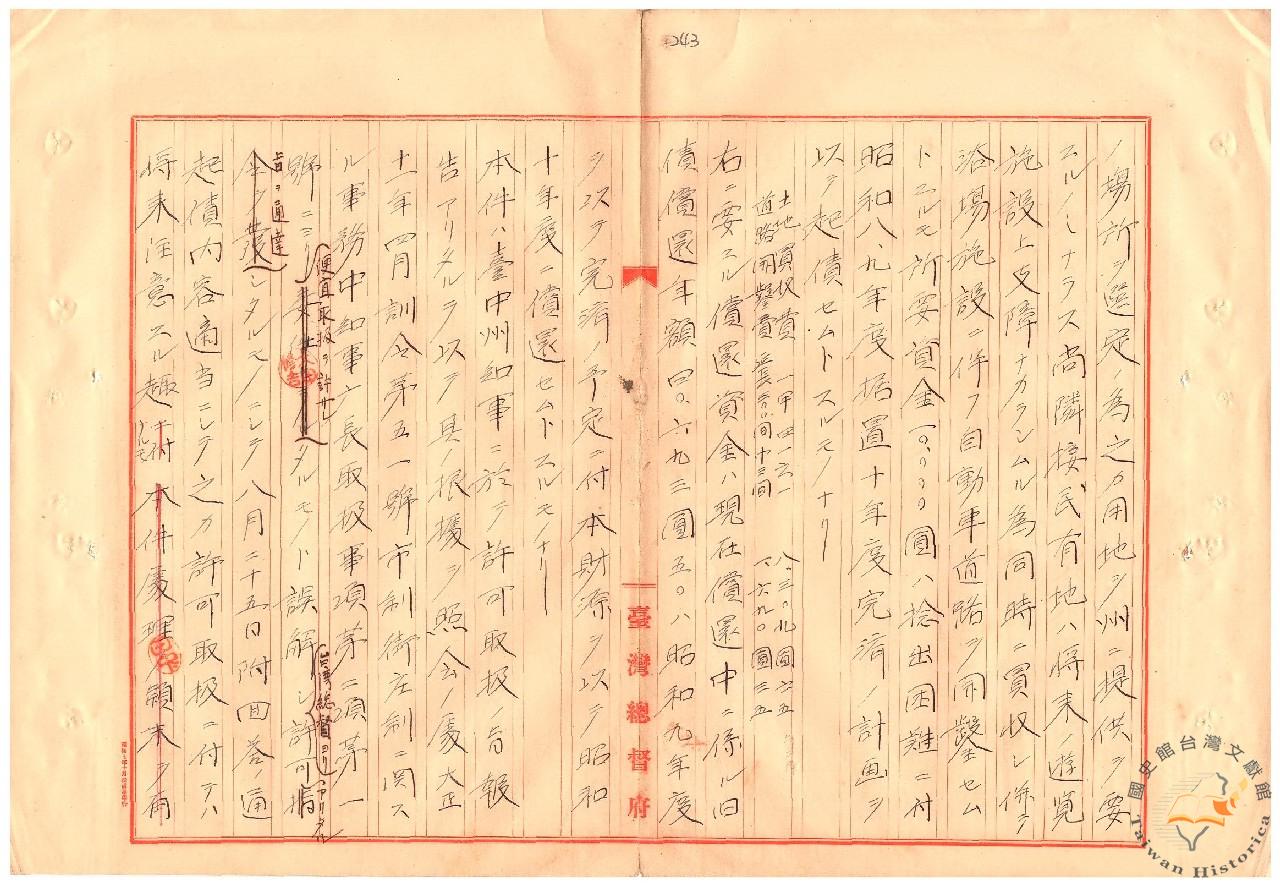 243
ノ場所ヲ選定ノ為之カ用地ヲ州ニ提供ヲ要
スルノミナラス尚隣接民有地ハ将来ノ遊覧
施設上支障ナカラシムル為同時ニ買収シ併テ
浴場施設ニ伴フ自動車道路ヲ開鑿セム
トスルモ所要資金一〇、〇〇〇圓ハ捻出困難ニ付
昭和八、九年度据置十年度完済ノ計画ヲ
以テ起債セムトスルモノナリ
土地買収費 一甲四一六一 八、三〇九圓六五
道路開鑿費 間十三間 一、六九〇圓三五
右ニ要スル償還資金ハ現在償還中ニ係ル旧
債償還年額四〇、六九三圓五〇ハ昭和九年度
ヲ以テ完済ノ予定ニ付本財源ヲ以テ昭和
十年度ニ償還セムトスルモノナリ
本件ハ臺中州知事ニ於テ許可取扱ノ旨報
告アリタルヲ以テ其ノ根據ヲ照会ノ處大正
十一年四月訓令第五一號市制街庄制ニ関ス
ル事務中知事廳長取扱事項第二項第一
號ニヨリ 便宜取扱ヲ許サ タルモノト誤解シ許可指
令ヲ 旨ヲ通達 シタルモノニシテ八月二十五日附回答ノ通 臺灣総督ヨリアリタル
起債内容適当ニシテ之カ許可取扱ニ付テハ
将来注意スル趣ニ付 本件處理 顛末ヲ具
臺灣總督府
國史館台灣文獻館
Taiwan Historica